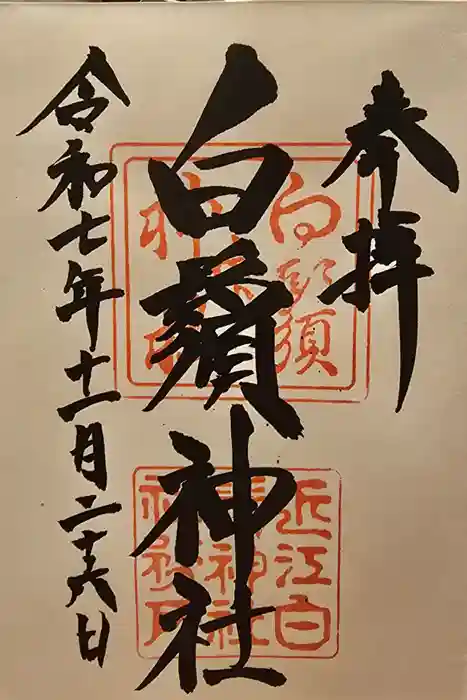 奉拝
白鬚神社
令和七年十一月二十六日
白鬚
神
近江白
鬚神社
社務